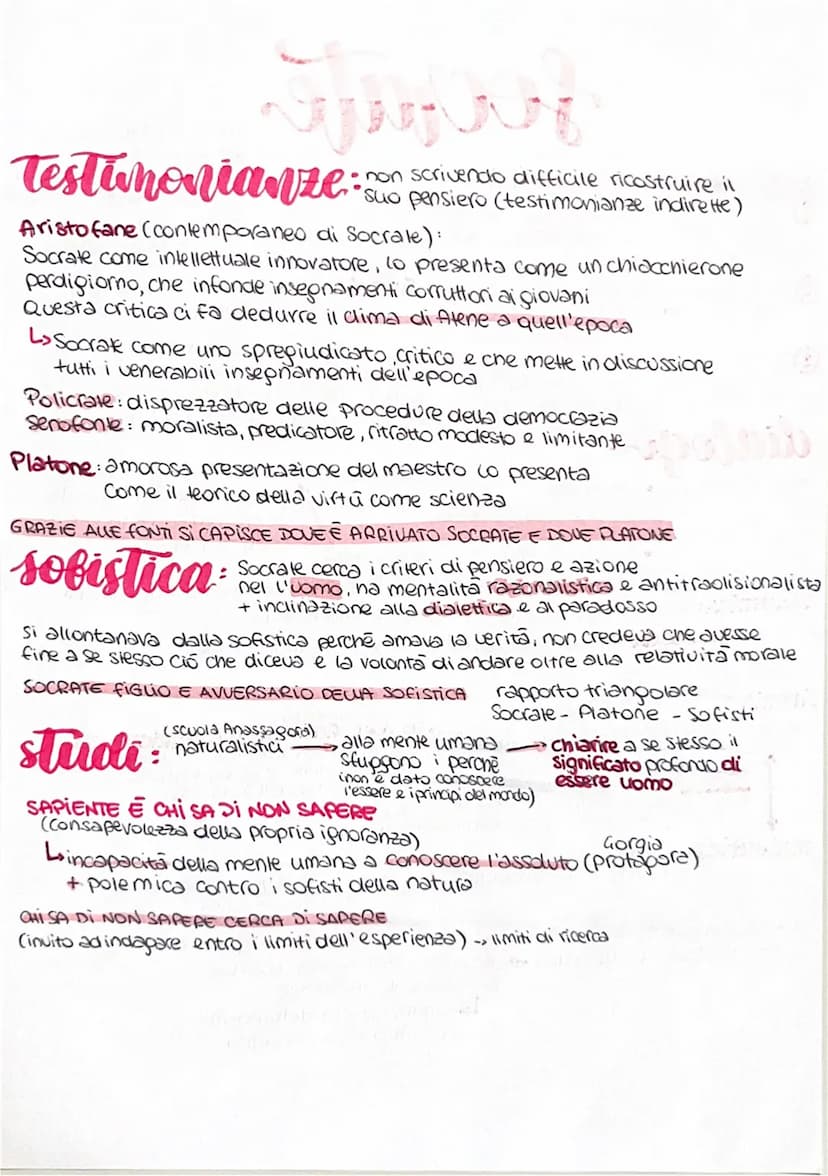 Testimonianze: non scrivendo difficile ricostruire il
suo pensiero (testimonianze indirette)
Aristofane (contemporaneo di Socrate):
Socrate come intellettuale innovatore, lo presenta come un chiacchierone
perdigiorno, che infonde insegnamenti corruttori ai giovani
Questa critica ci fa dedurre il clima di Atene a quell'epoca
↳ Socrate come uno spregiudicato, critico e che mette in discussione
tutti i venerabili insegnamenti dell'epoca
Policrate: disprezzatore delle procedure della democrazia
Senofonte: moralista, predicatore, ritratto modesto e limitante
Platone: amorosa presentazione del maestro lo presenta
come il teorico della virtù come scienza
GRAZIE ALLE FONTI SI CAPISCE DOVE È ARRIVATO SOCRATE E DOVE PLATONE
sofistica: Socrate cerca i criteri di pensiero e azione
nel l'uomo, ha mentalità razionalistica e antitradisionalista
+ inclinazione alla dialettica e al paradosso
Si allontanava dalla sofistica perchē amava la verità, non credeva che avesse
fine a se stesso ciò che diceva e la volontà di andare oltre alla relatività morale
SOCRATE FIGLIO E AVVERSARIO DELLA SOFISTICA rapporto triangolare
Socrate - Platone - Sofisti
studi: (scuola Anassagora)
naturalistici → alla mente umana → chiarire a se stesso il
sfuggono i perchē significato profondo di
(non è dato conoscere essere uomo
l'essere e i principi del mondo)
SAPIENTE È CHI SA DI NON SAPERE
(consapevolezza della propria ignoranza)
Gorgia
↳ incapacità della mente umana a conoscere l'assoluto (protagora)
+ polemica contro i sofisti della natura
CHI SA DI NON SAPERE CERCA DI SAPERE
(invito ad indagare entro i limiti dell'esperienza) → limiti di ricerca